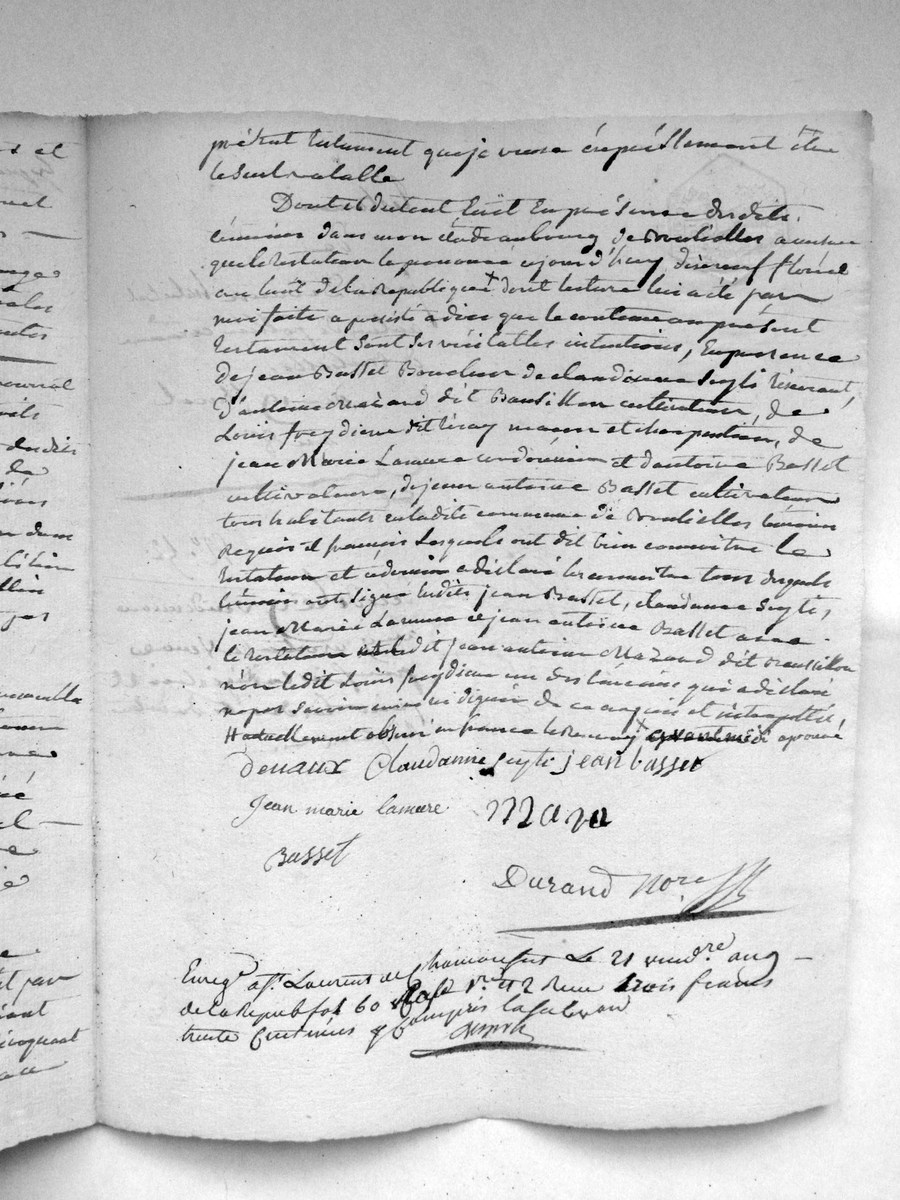 présent testament que je veux expressement être
le seul valable
Dont et du tout fait en présence desdits
témoins dans mon étude au bourg de
que le testateur le prononce ce jour d'huy dixneuf floréal
an huit de la republique + dont lecture lui a été par
moi faite a persisté a dire que le contenu au présent
testament sont ses véritables intentions, En presence
de jean Basset Boucher de claudanne seyte tisserant,
d'antoine mazard dit Bausillon cultivateur, de
Louis freydiere dit maçon et charpentier, de
jean Marie Lamure cordonnier et d'antoine Basset
cultivateur, de jean antoine Basset cultivateur
tous habitants en ladite commune de témoins
requis et français Lesquels ont dit bien connoitre le
testateur et ce dernier a déclaré les connoitre tous desquels
témoins ont signé lesdits jean Basset, claudanne seyte,
jean Marie Lamure et jean antoine Basset avec
le testateur ledit jean antoine Mazard dit
non ledit Louis freydiere un des témoins qui a déclaré
ne pas savoir signer de ce enquis et interpellé
en france le
Devaux Claudanne seyte jean basset
Jean marie lamure Maza
Basset
Durand No.re
Enreg.é a S.t Laurent de Chamousset Le 21 vend.re an 9
de la Repub. fol 60 V.o C.se 1.re et 2 Reçu trois francs
trente Centimes y Compris la Subvon